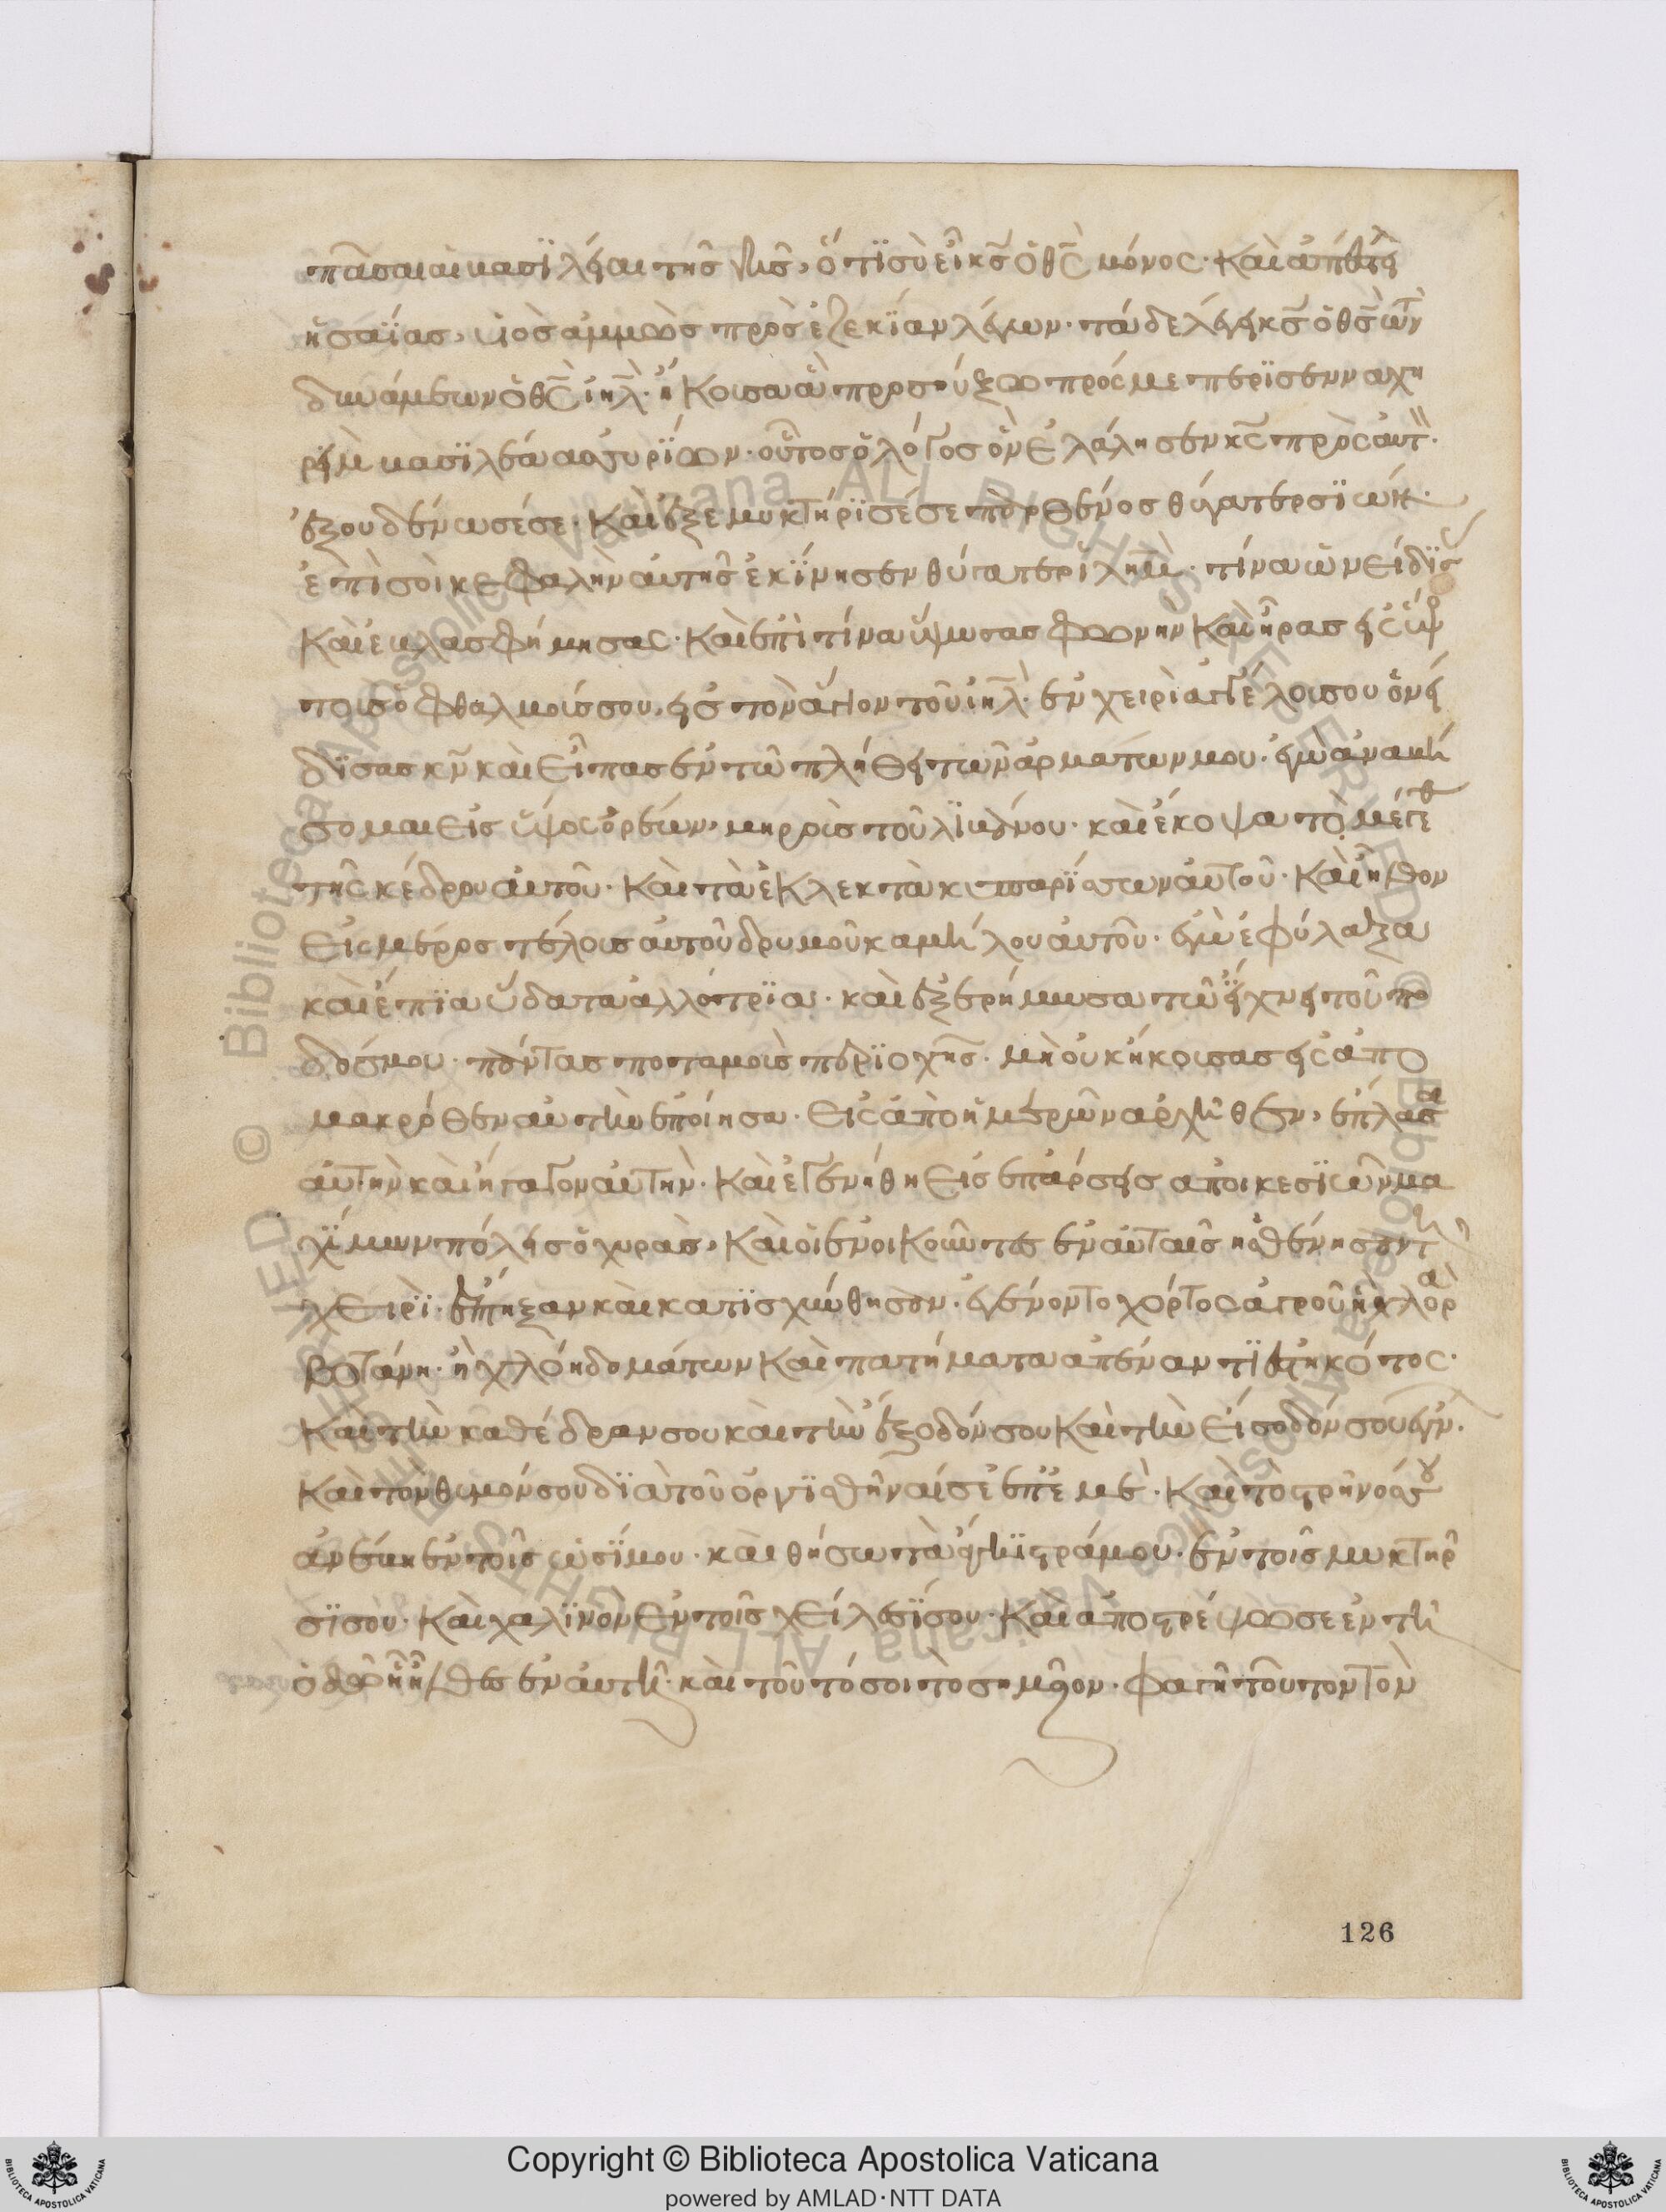 πᾶσαι αἱ βασϊλείαι τῆς γῆς, ὅτϊ σὺ εἶ κ̅ς̅ ὁ θ̅ς̅ μόνος· Καὶ ἀπέστειλ
ἡσαΐας, υἱὸς ἀμμῶς πρὸς ἐζεκΐαν λέγων· τάδε λέγει κ̅ς̅ ὁ θ̅ς̅ τῶν
δυνάμεων ὁ θ̅ς̅ ι̅η̅λ̅· ἤκουσα ἃ προσηύξω πρός με περϊ σενναχη
ρεὶμ βασϊλέα ἀσσυρΐων· οὗτος ὁ λόγος ὃν ἐλάλησεν κ̅ς̅ πρὸς αὐτ·
ἐξουδένωσέ σε· Καὶ ἐξεμυκτήρϊσέ σε παρθένος θύγατερ σϊών·
ἐπὶ σοὶ κεφαλὴν αὐτῆς ἐκΐνησεν θύγατερ ι̅λ̅η̅μ̅· τίνα ὠνείδϊσ
Καὶ ἐβλασφήμησας· Καὶ ἐπὶ τίνα ὕψωσας φωνὴν Καὶ ἦρας εἰς ὕψο
τοὺς ὀφθαλμούς σου, εἰς τὸν ἅγιον τοῦ ι̅η̅λ̅· ἐν χειρὶ ἀγγέλου σου ὀνεί
δϊσας κ̅ν̅ καὶ εἶπας ἐν τῶ πλήθει τῶν ἁρμάτων μου· ἐγὼ ἀναβή
σομαι εἰς ὕψος ὀρέων, μηροὺς τοῦ λϊβάνου· καὶ ἔκοψα τὸ μέγεθ
τῆς κέδρου αὐτοῦ· Καὶ τὰ ἐκλεκτὰ κυπαρΐσσων αὐτοῦ· Καὶ ἦλθον
εἰς μέρος τέλους αὐτοῦ δρυμοῦ καρμήλου αὐτοῦ· ἐγὼ ἐφύλαξα
καὶ ἔπϊα ὕδατα ἀλλότρϊα· καὶ ἐξερήμωσα τῶ ἴχνει τοῦ πο
δός μου· πάντας ποταμοὺς περϊοχῆς· μὴ οὐκ ἤκουσας εἰς ἀπὸ
μακρόθεν αὐτὴν ἐποίησα· εἰς ἀπὸ ἡμερῶν ἀρχῆθεν, ἔπλασα
αὐτὴν καὶ ἤγαγον αὐτὴν· Καὶ ἐγενήθη εἰς ἐπάρσεις ἀποικεσϊῶν μα
χΐμων πόλεις ὀχυρὰς, Καὶ οἱ ἐνοικοῦντες ἐν αὐταῖς ἠσθένησαν τῆ
χειρϊ· ἔπτηξαν καὶ κατϊσχύνθησαν· ἐγένοντο χόρτος ἀγροῦ ἢ χλορὰ
βοτάνη· ἢ χλόη δομάτων Καὶ πατήματα ἀπέναντϊ ἑστηκότος·
Καὶ τὴν καθέδραν σου καὶ τὴν ἔξοδόν σου Καὶ τὴν εἴσοδόν σου ἔγν·
Καὶ τὸν θυμόν σου δϊὰ τοῦ ὀργϊσθῆναί σε ἐπ' ἐμὲ· Καὶ τὸ στρῆνός σου
ἀνέβη ἐν τοῖς ὠσΐ μου· καὶ θήσω τὰ ἄγκϊστρά μου· ἐν τοῖς μυκτῆρ
σϊ σου· Καὶ χαλϊνὸν ἐν τοῖς χείλεσϊ σου· Καὶ ἀποστρέψω σε ἐν τῆ
ὁδῶ ἧ ἦλθες ἐν αὐτῆ· καὶ τοῦτό σοι τὸ σημεῖον· φάγη τοῦτον τὸν
126
Copyright © Biblioteca Apostolica Vaticana
powered by AMLAD·NTT DATA